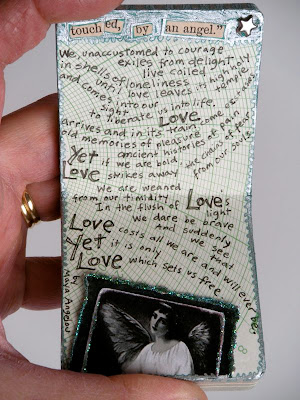 touched, by an angel."
We, unaccustomed to courage
exiles from delight
live coiled
in shells of loneliness
until love leaves its high holy temple
and comes into our sight
to liberate us into life.
Love arrives
and in its train come ecstasies
old memories of pleasure
ancient histories of pain
Yet if we are bold
Love strikes away the chains of fear
from our souls.
We are weaned
from our timidity
In the flush of Love's light
we dare be brave
And suddenly we see
Love costs all we are and will ever be.
Yet it is only
Love which sets us free
by Maya Angelou